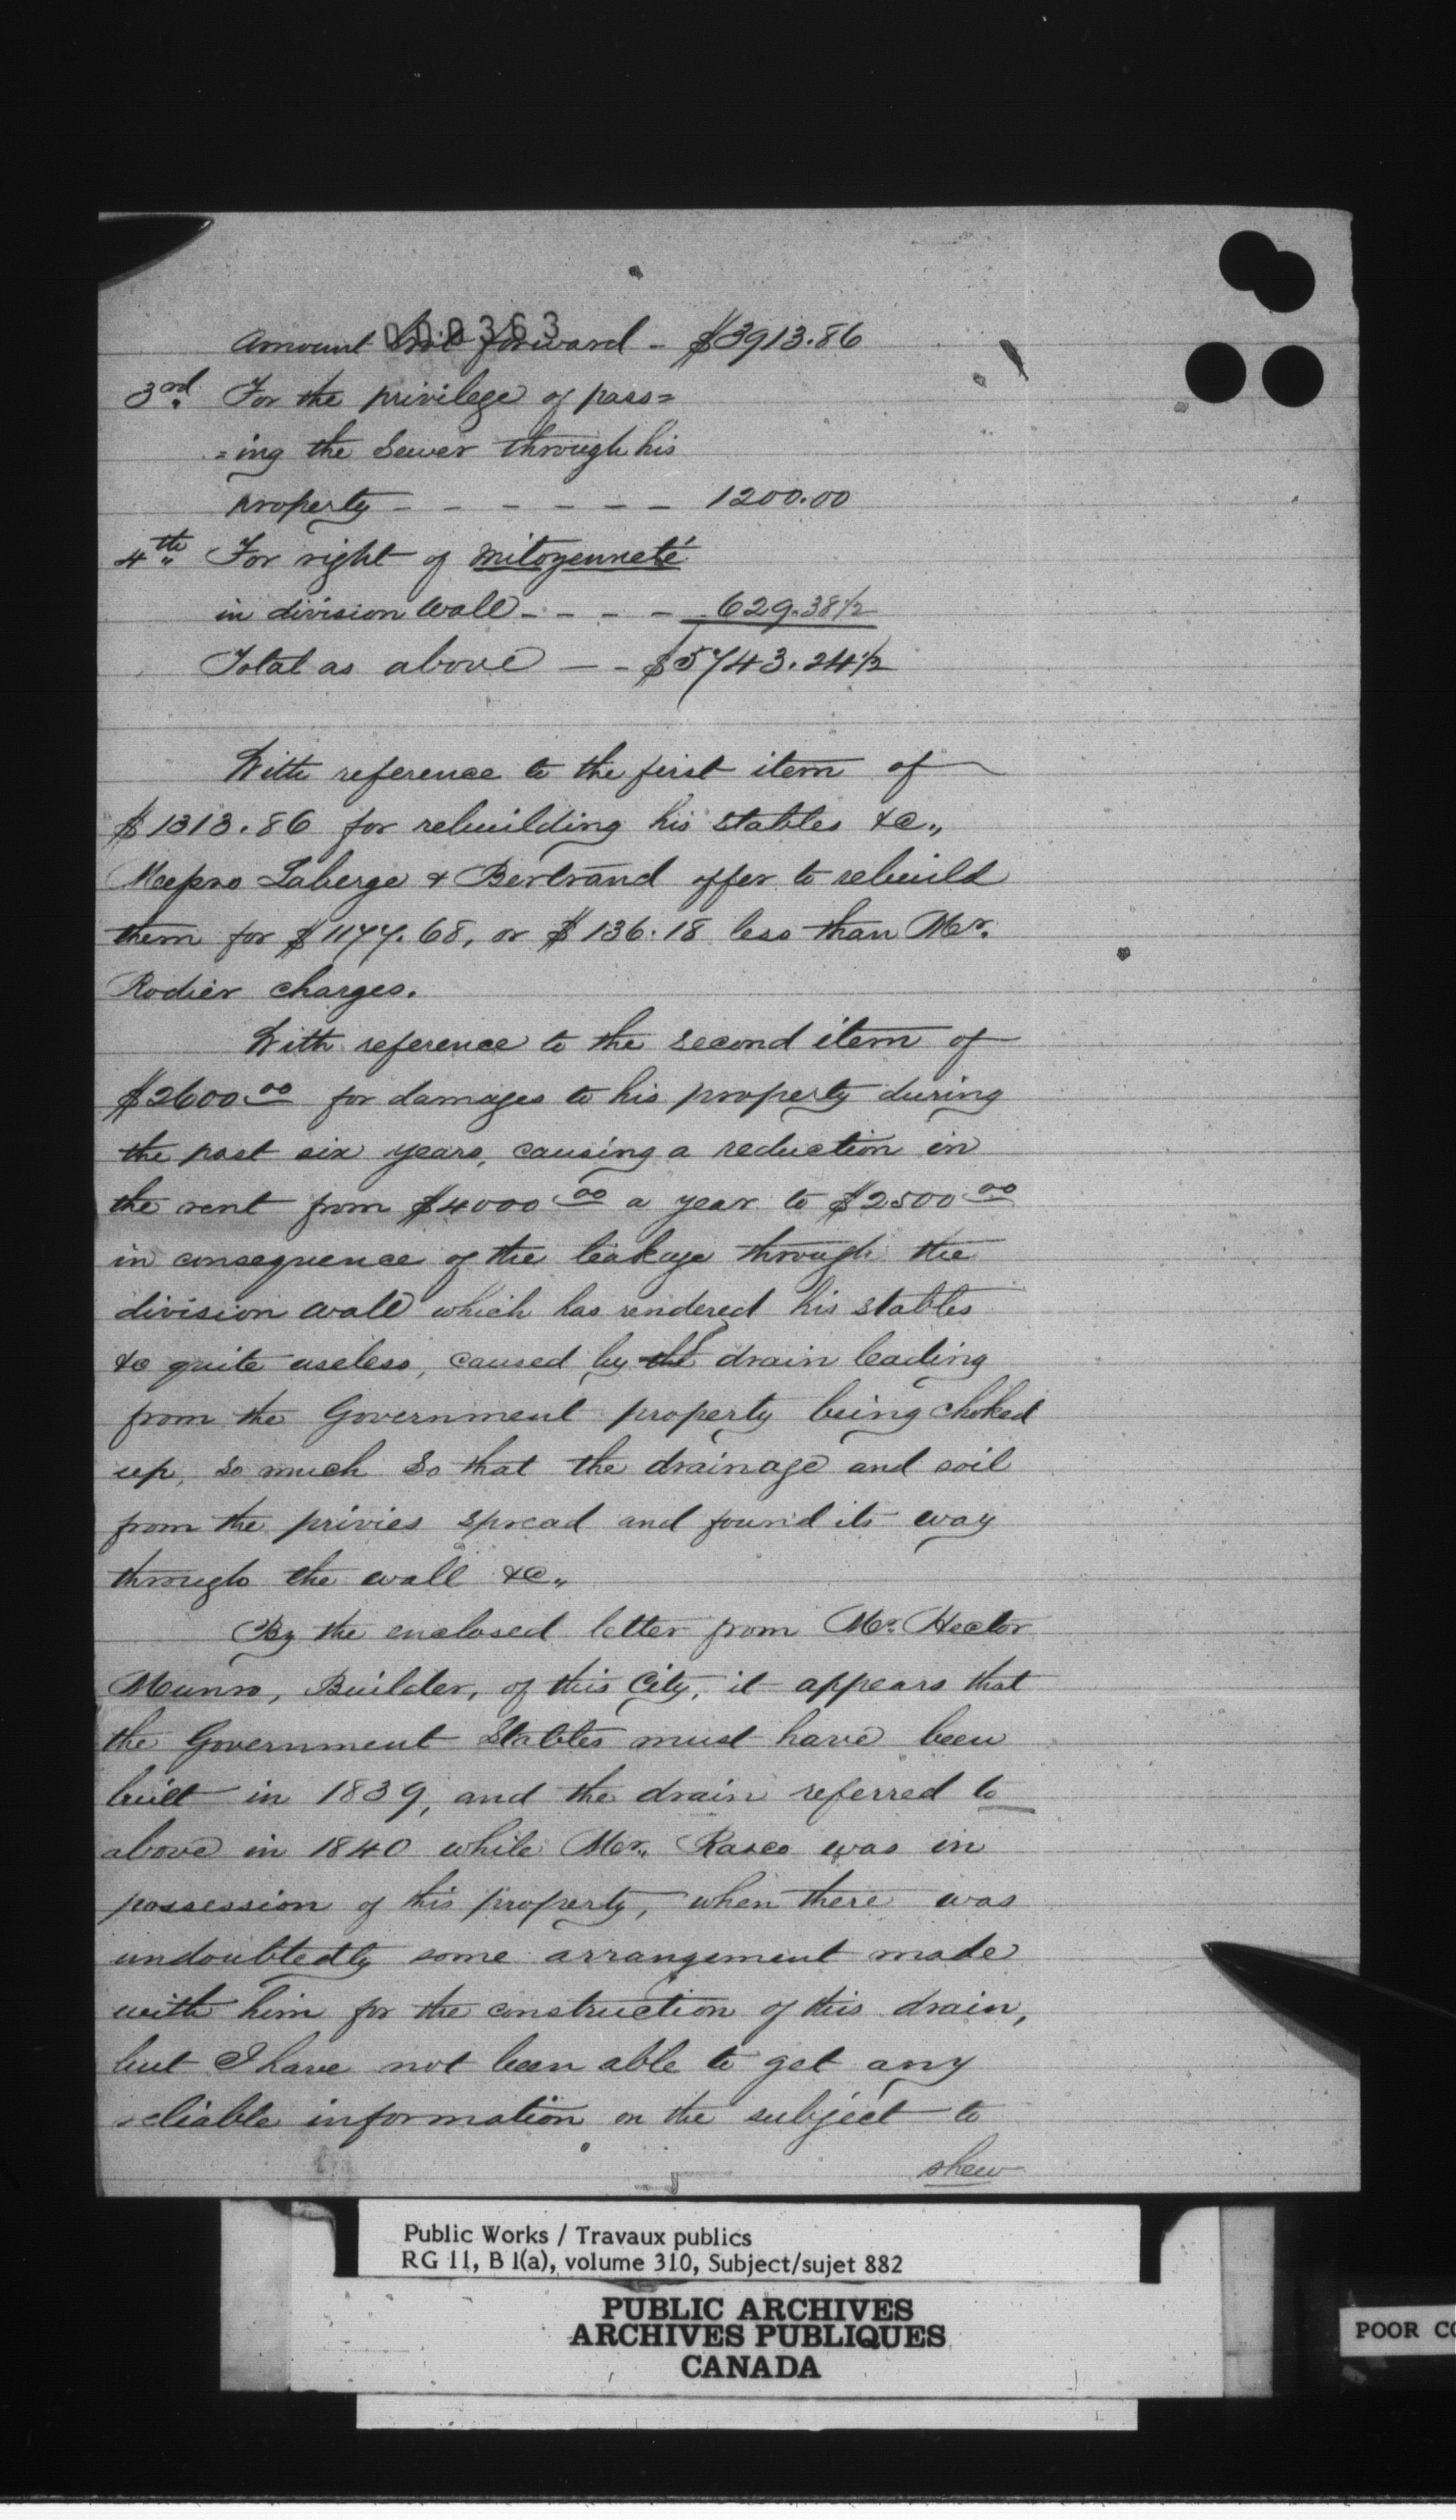 000363
Amount bro't forward - $3913.86
3rd. For the privilege of pass=
=ing the Sewer through his
property - - - - - - 1200.00
4th " For right of mitoyenneté
in division Wall - - - - 629.38½
Total as above - - $5743.24½
With reference to the first item of
$1313.86 for rebuilding his stables &c.,
Messrs Laberge & Bertrand offer to rebuild
them for $1177.68, or $136.18 less than Mr.
Rodier charges.
With reference to the second item of
$2600.00 for damages to his property during
the past six years, causing a reduction in
the rent from $4000.00 a year to $2500.00
in consequence of the leakage through the
division wall which has rendered his stables
&c quite useless, caused by the drain leading
from the Government property being choked
up, so much so that the drainage and soil
from the privies spread and found its way
through the wall &c.,
By the enclosed letter from Mr. Hector
Munro, Builder, of this City, it appears that
the Government Stables must have been
built in 1839, and the drain referred to
above in 1840 while Mr. Rasco was in
possession of this property, when there was
undoubtedly some arrangement made
with him for the construction of this drain,
but I have not been able to get any
reliable information on the subject to
shew
Public Works / Travaux publics
RG 11, B 1(a), volume 310, Subject/sujet 882
PUBLIC ARCHIVES
ARCHIVES PUBLIQUES
CANADA
POOR CO